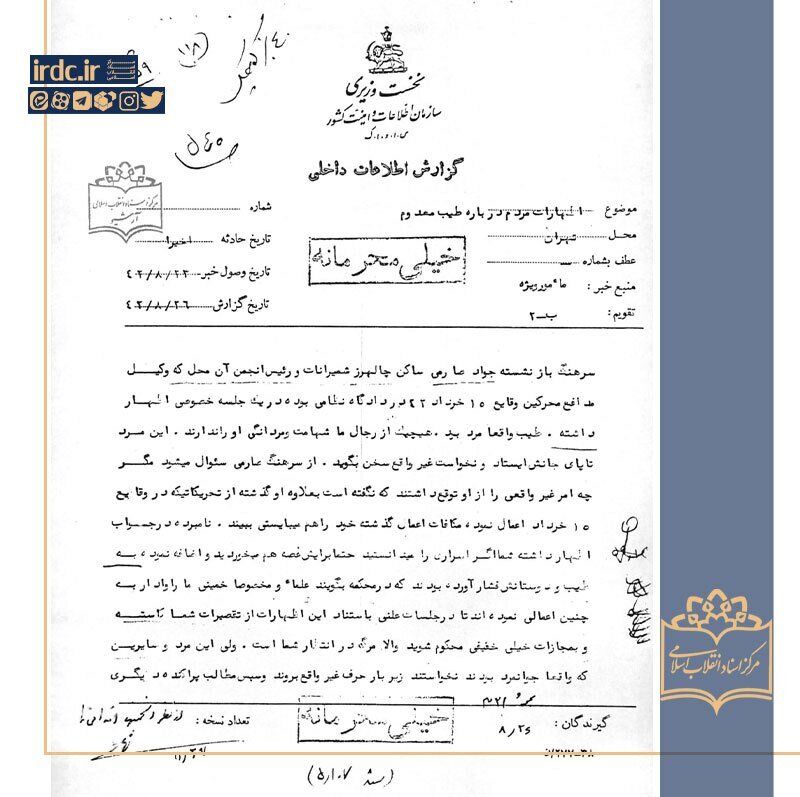 irdc.ir
نخست وزیری
سازمان اطلاعات و امنیت کشور
س.ا.و.ا.ک
گزارش اطلاعات داخلی
مرکز اسناد انقلاب اسلامی
آرشیو
موضوع اظهارات مردم درباره طیب معدوم
شماره
محل تهران
تاریخ حادثه اخیرا
عطف بشماره
خیلی محرمانه
تاریخ وصول خبر ۴۲/۸/۲۳
منبع خبر: مأمور ویژه
تاریخ گزارش ۴۲/۸/۲۶
تقویم: ب-۲
سرهنگ باز نشسته جواد صارمی ساکن چالهرز شمیرانات و رئیس انجمن آن محل که وکیل
مدافع محرکین وقایع ۱۵ خرداد ۴۲ در دادگاه نظامی بوده در یک جلسه خصوصی اظهار
داشته . طیب واقعا مرد بید . هیچیک از رجال ما شهامت و مردانگی او را ندارند . این مرد
تا پای جانش ایستاد و نخواست غیر واقع سخن بگوید . از سرهنگ صارمی سئوال میشود مگر
چه امر غیر واقعی را از او توقع داشتند که نگفته است بعلاوه او گذشته از تحریکاتیکه در وقایع
۱۵ خرداد اعمال نموده مکافات اعمال گذشته خود را هم میبایستی ببیند . نامبرده در جواب
اظهار داشته شما اگر اسراری را میدانستید حتما برایش غصه هم میخوردید و اضافه نموده به
طیب و دوستانش فشار آورده بودند که در محکمه بگویند علماء و مخصوصا خمینی ما را وادار به
چنین اعمالی نموده اند تا در جلسات علنی باستناد این اظهارات از تقصیرات شما کاسته
و بمجازات خیلی خفیفی محکوم شوید والا مرگ در انتظار شما است . ولی این مرد و سایرین
که واقعا جوانمرد بودند نخواستند زیر بار حرف غیر واقع بروند و سپس مطالب پراکنده دیگری
گیرندگان :
۸/۲۶
خیلی محرمانه
تعداد نسخه :
مرکز اسناد انقلاب اسلامی